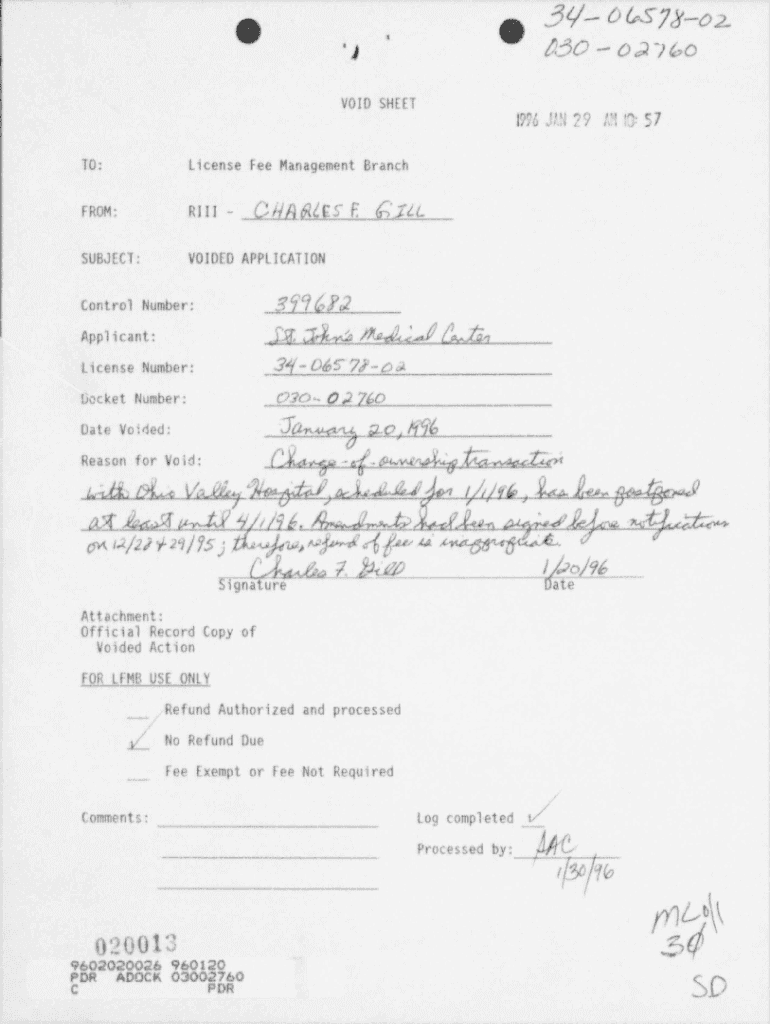 34-06578-02
030-02760
VOID SHEET
1996 JAN 29 AM 10: 57
TO: License Fee Management Branch
FROM: RIII - CHARLES F. GILL
SUBJECT: VOIDED APPLICATION
Control Number: 399682
Applicant: St. John's Medical Center
License Number: 34-06578-02
Docket Number: 030-02760
Date Voided: January 20, 1996
Reason for Void: Change-of-ownership transaction
with Ohio Valley Hospital, scheduled for 1/1/96, has been postponed
at least until 4/1/96. Amendments had been signed before notifications
on 12/28 + 29/95; therefore, refund of fee is inappropriate.
Charles F. Gill 1/20/96
Signature Date
Attachment:
Official Record Copy of
Voided Action
FOR LFMB USE ONLY
Refund Authorized and processed
✓ No Refund Due
Fee Exempt or Fee Not Required
Comments: Log completed ✓
Processed by: SAC
1/30/96
020013
9602020026 960120
PDR ADOCK 03002760
C PDR
SD